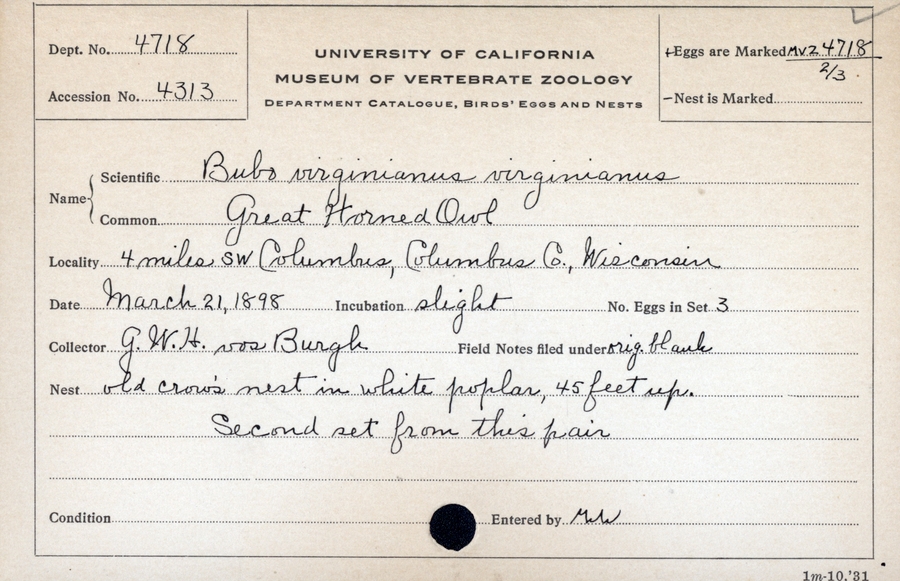 Dept. No. 4718
Accession No. 4313
UNIVERSITY OF CALIFORNIA
MUSEUM OF VERTEBRATE ZOOLOGY
DEPARTMENT CATALOGUE, BIRDS' EGGS AND NESTS
+Eggs are Marked MVZ 4718
2/3
-Nest is Marked
Name
Scientific Bubo virginianus virginianus
Common Great Horned Owl
Locality 4 miles SW Columbus, Columbus Co., Wisconsin
Date March 21, 1898 Incubation slight No. Eggs in Set 3
Collector G. W. H. vos Burgh Field Notes filed under orig. blank
Nest old crow's nest in white poplar, 45 feet up.
Second set from this pair
Condition Entered by
1m-10,'31